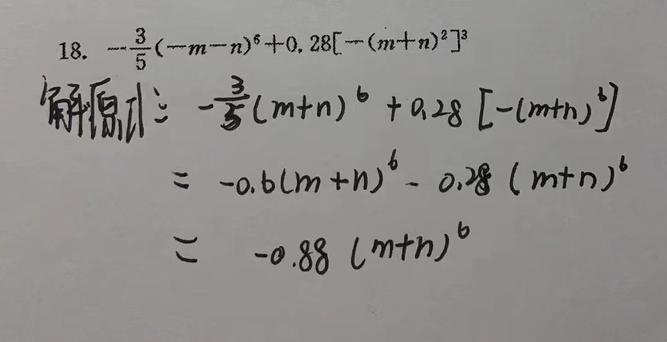 18. -3/5(-m-n)⁶+0.28[-(m+n)²]³
解:原式= -3/5(m+n)⁶+0.28[-(m+n)⁶]
= -0.6(m+n)⁶-0.28(m+n)⁶
= -0.88(m+n)⁶